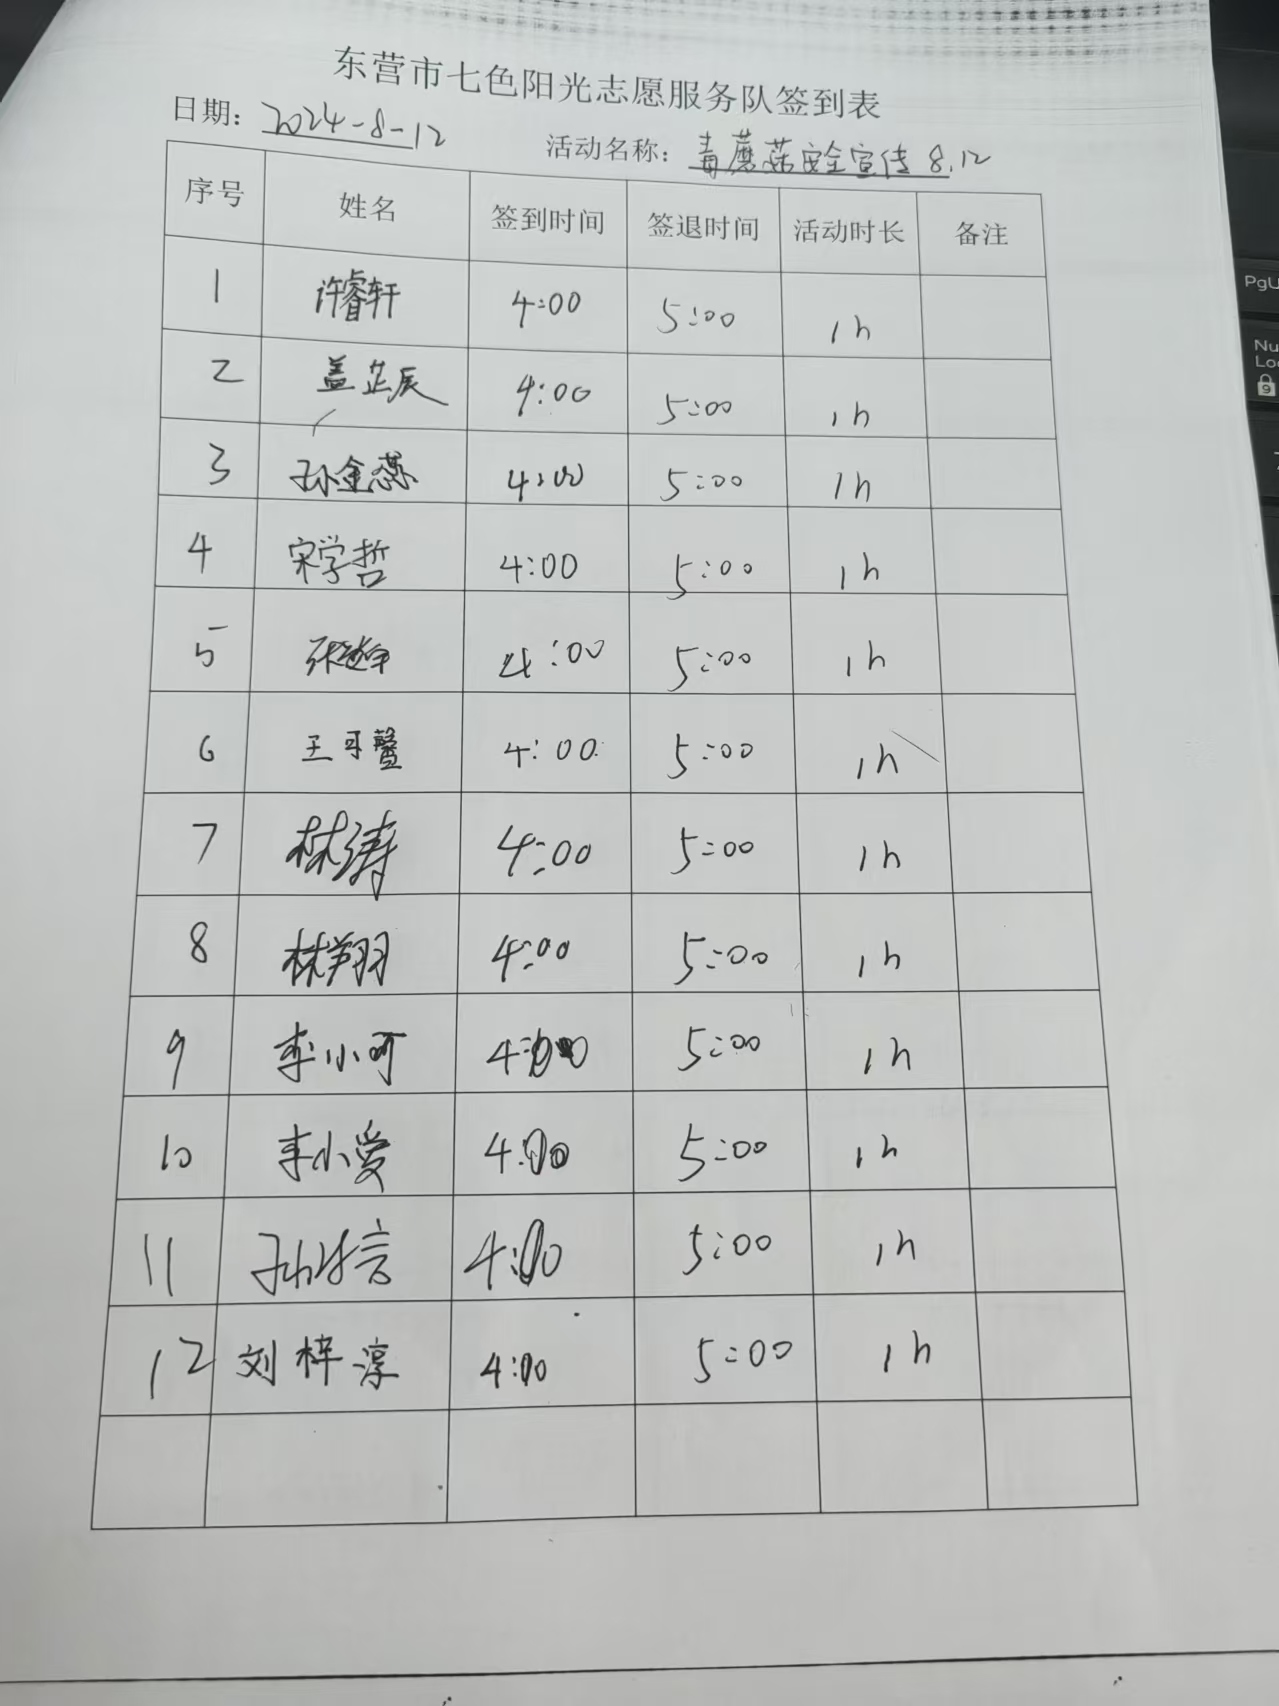 东营市七色阳光志愿服务队签到表
日期：2024-8-12 活动名称：毒蘑菇安全宣传 8.12
序号 姓名 签到时间 签退时间 活动时长 备注
1 许睿轩 4:00 5:00 1h
2 盖芷辰 4:00 5:00 1h
3 孙金蕊 4:00 5:00 1h
4 宋学哲 4:00 5:00 1h
5 4:00 5:00 1h
6 王可馨 4:00 5:00 1h
7 林涛 4:00 5:00 1h
8 林翔羽 4:00 5:00 1h
9 李小可 4:00 5:00 1h
10 李小爱 4:00 5:00 1h
11 4:00 5:00 1h
12 刘梓淳 4:00 5:00 1h
PgU
Nu
Loc
9